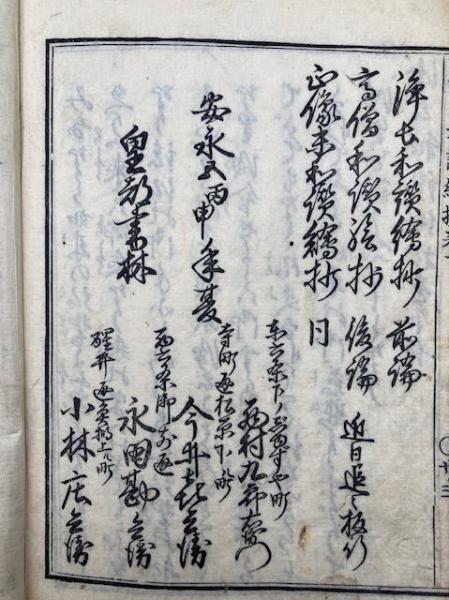 浄土和讃繪抄 前編
高僧和讃繪抄 後編 近日追々板行
正像末和讃繪抄 同
安永五丙申年夏
皇都書林
村九郎右衛門
寺町通松原下ル町
今井喜兵衛
西六条御前通
永田勘兵衛
醒井通魚棚上ル町
小林庄兵衛